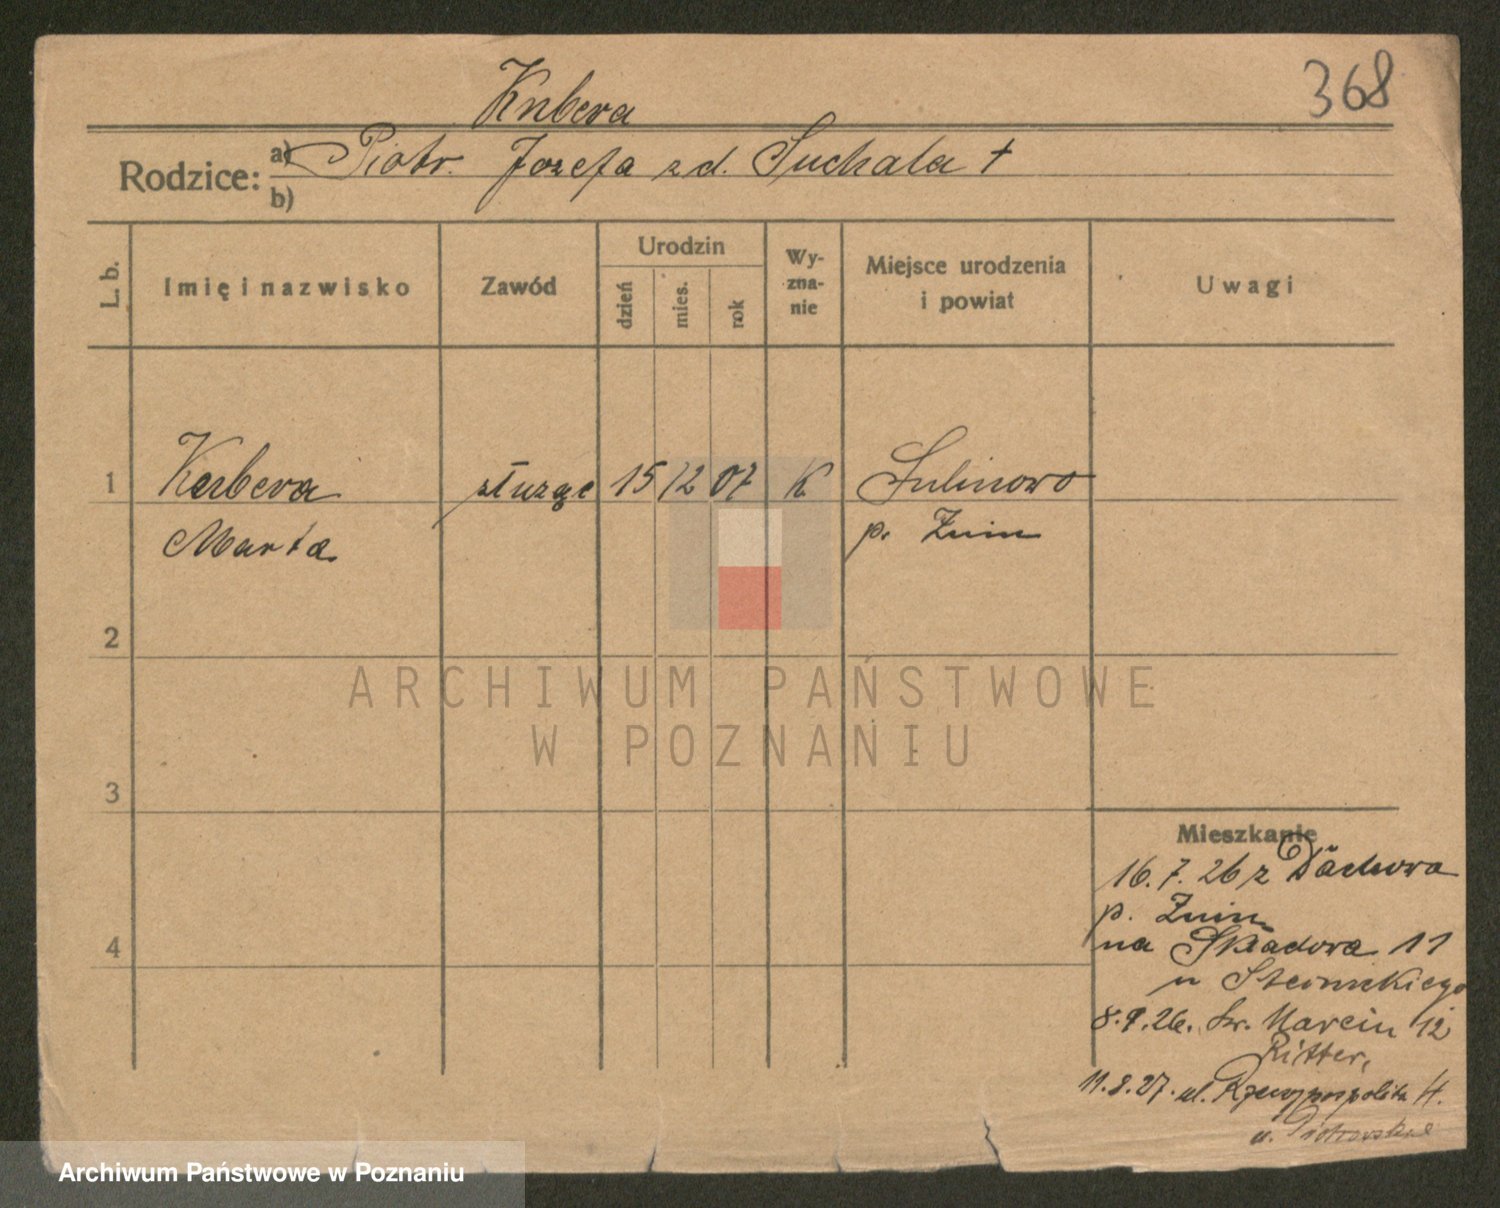 Kubera
368
Rodzice: a) Piotr. Jozefa zd. Suchala †
b)
L. b.
Imię i nazwisko
Zawód
Urodzin
dzień
mies.
rok
Wy-
zna-
nie
Miejsce urodzenia
i powiat
Uwagi
1 Kubera służące 15 12 07 K Sulinowo
Marta p. Żnin
2
3
4
Mieszkanie
16. 7. 26 z
p. Żnin
na Składowa 11
u
8. 9. 26. Św. Marcin 12
Ritter,
11. 8. 27. ul. Rzeczypospolita 4.
u.
ARCHIWUM PAŃSTWOWE
W POZNANIU
Archiwum Państwowe w Poznaniu